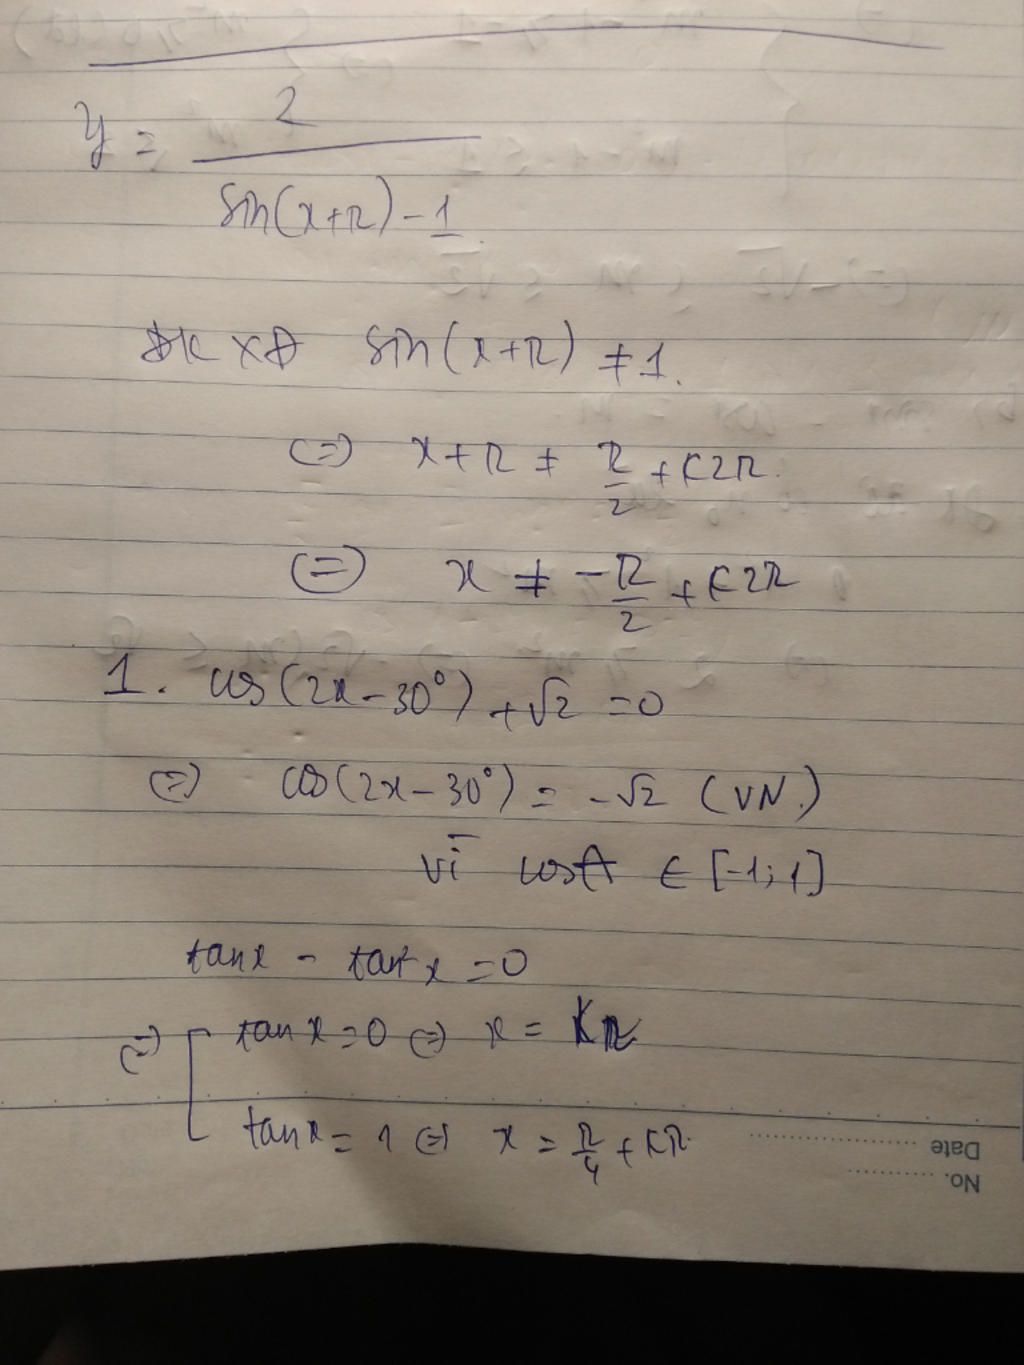 y = 2 / (sin(x+π) - 1)
ĐK XĐ sin(x+π) ≠ 1.
(=) x+π ≠ π/2 + K2π.
(=) x ≠ -π/2 + K2π
1. cos(2x-30°) + √2 = 0
(=) cos(2x-30°) = -√2 (VN.)
vì cosA ∈ [-1;1]
tanx - tan²x = 0
(=) [ tanx = 0 (=) x = Kπ
tanx = 1 (=) x = π/4 + Kπ.
Date
No.